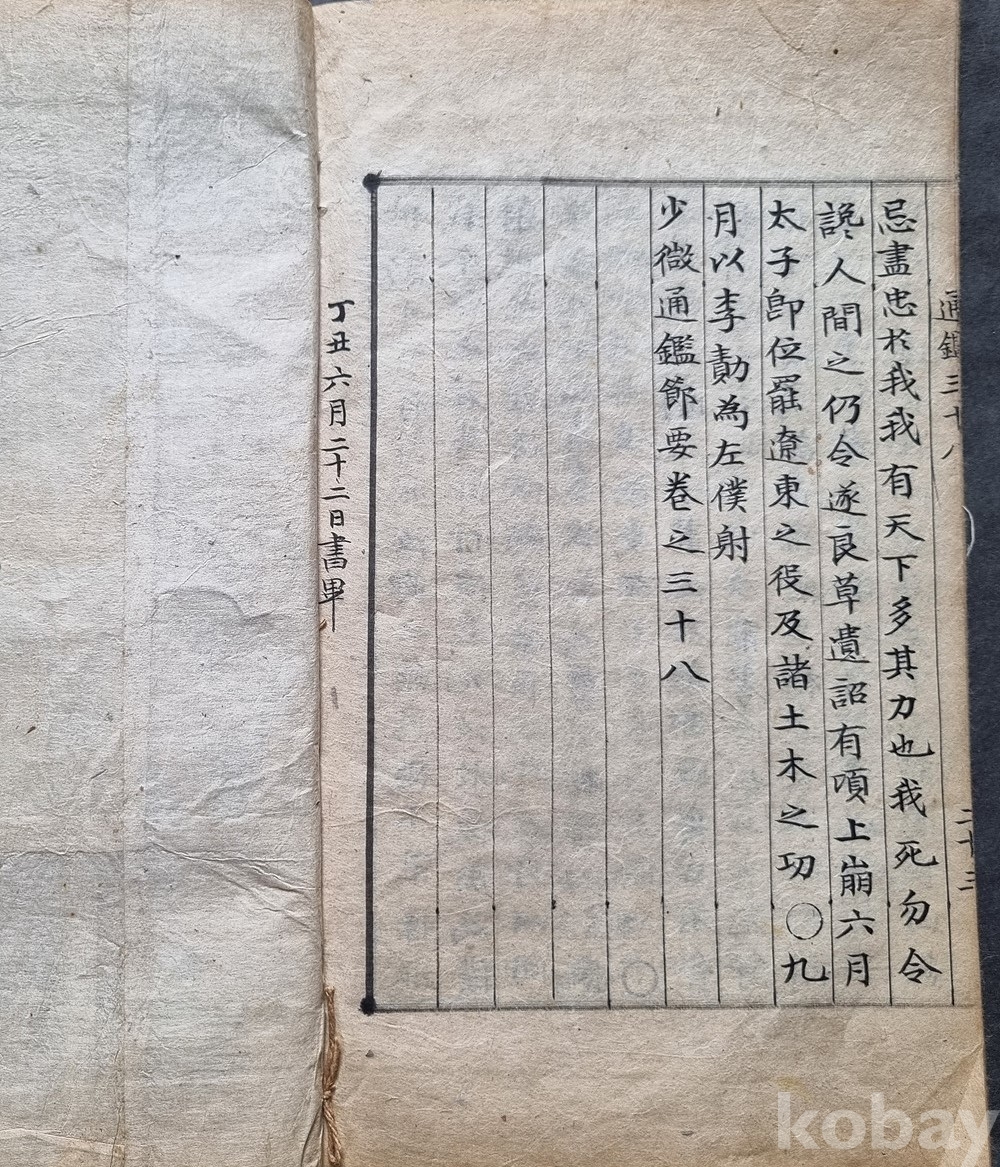 通鑑三十八
二十三
忌盡忠於我我有天下多其力也我死勿令
讒人間之仍令遂良草遺詔有項上崩六月
太子卽位罷遼東之役及諸土木之功〇九
月以李勣為左僕射
少微通鑑節要卷之三十八
丁丑六月二十二日書畢
kobay